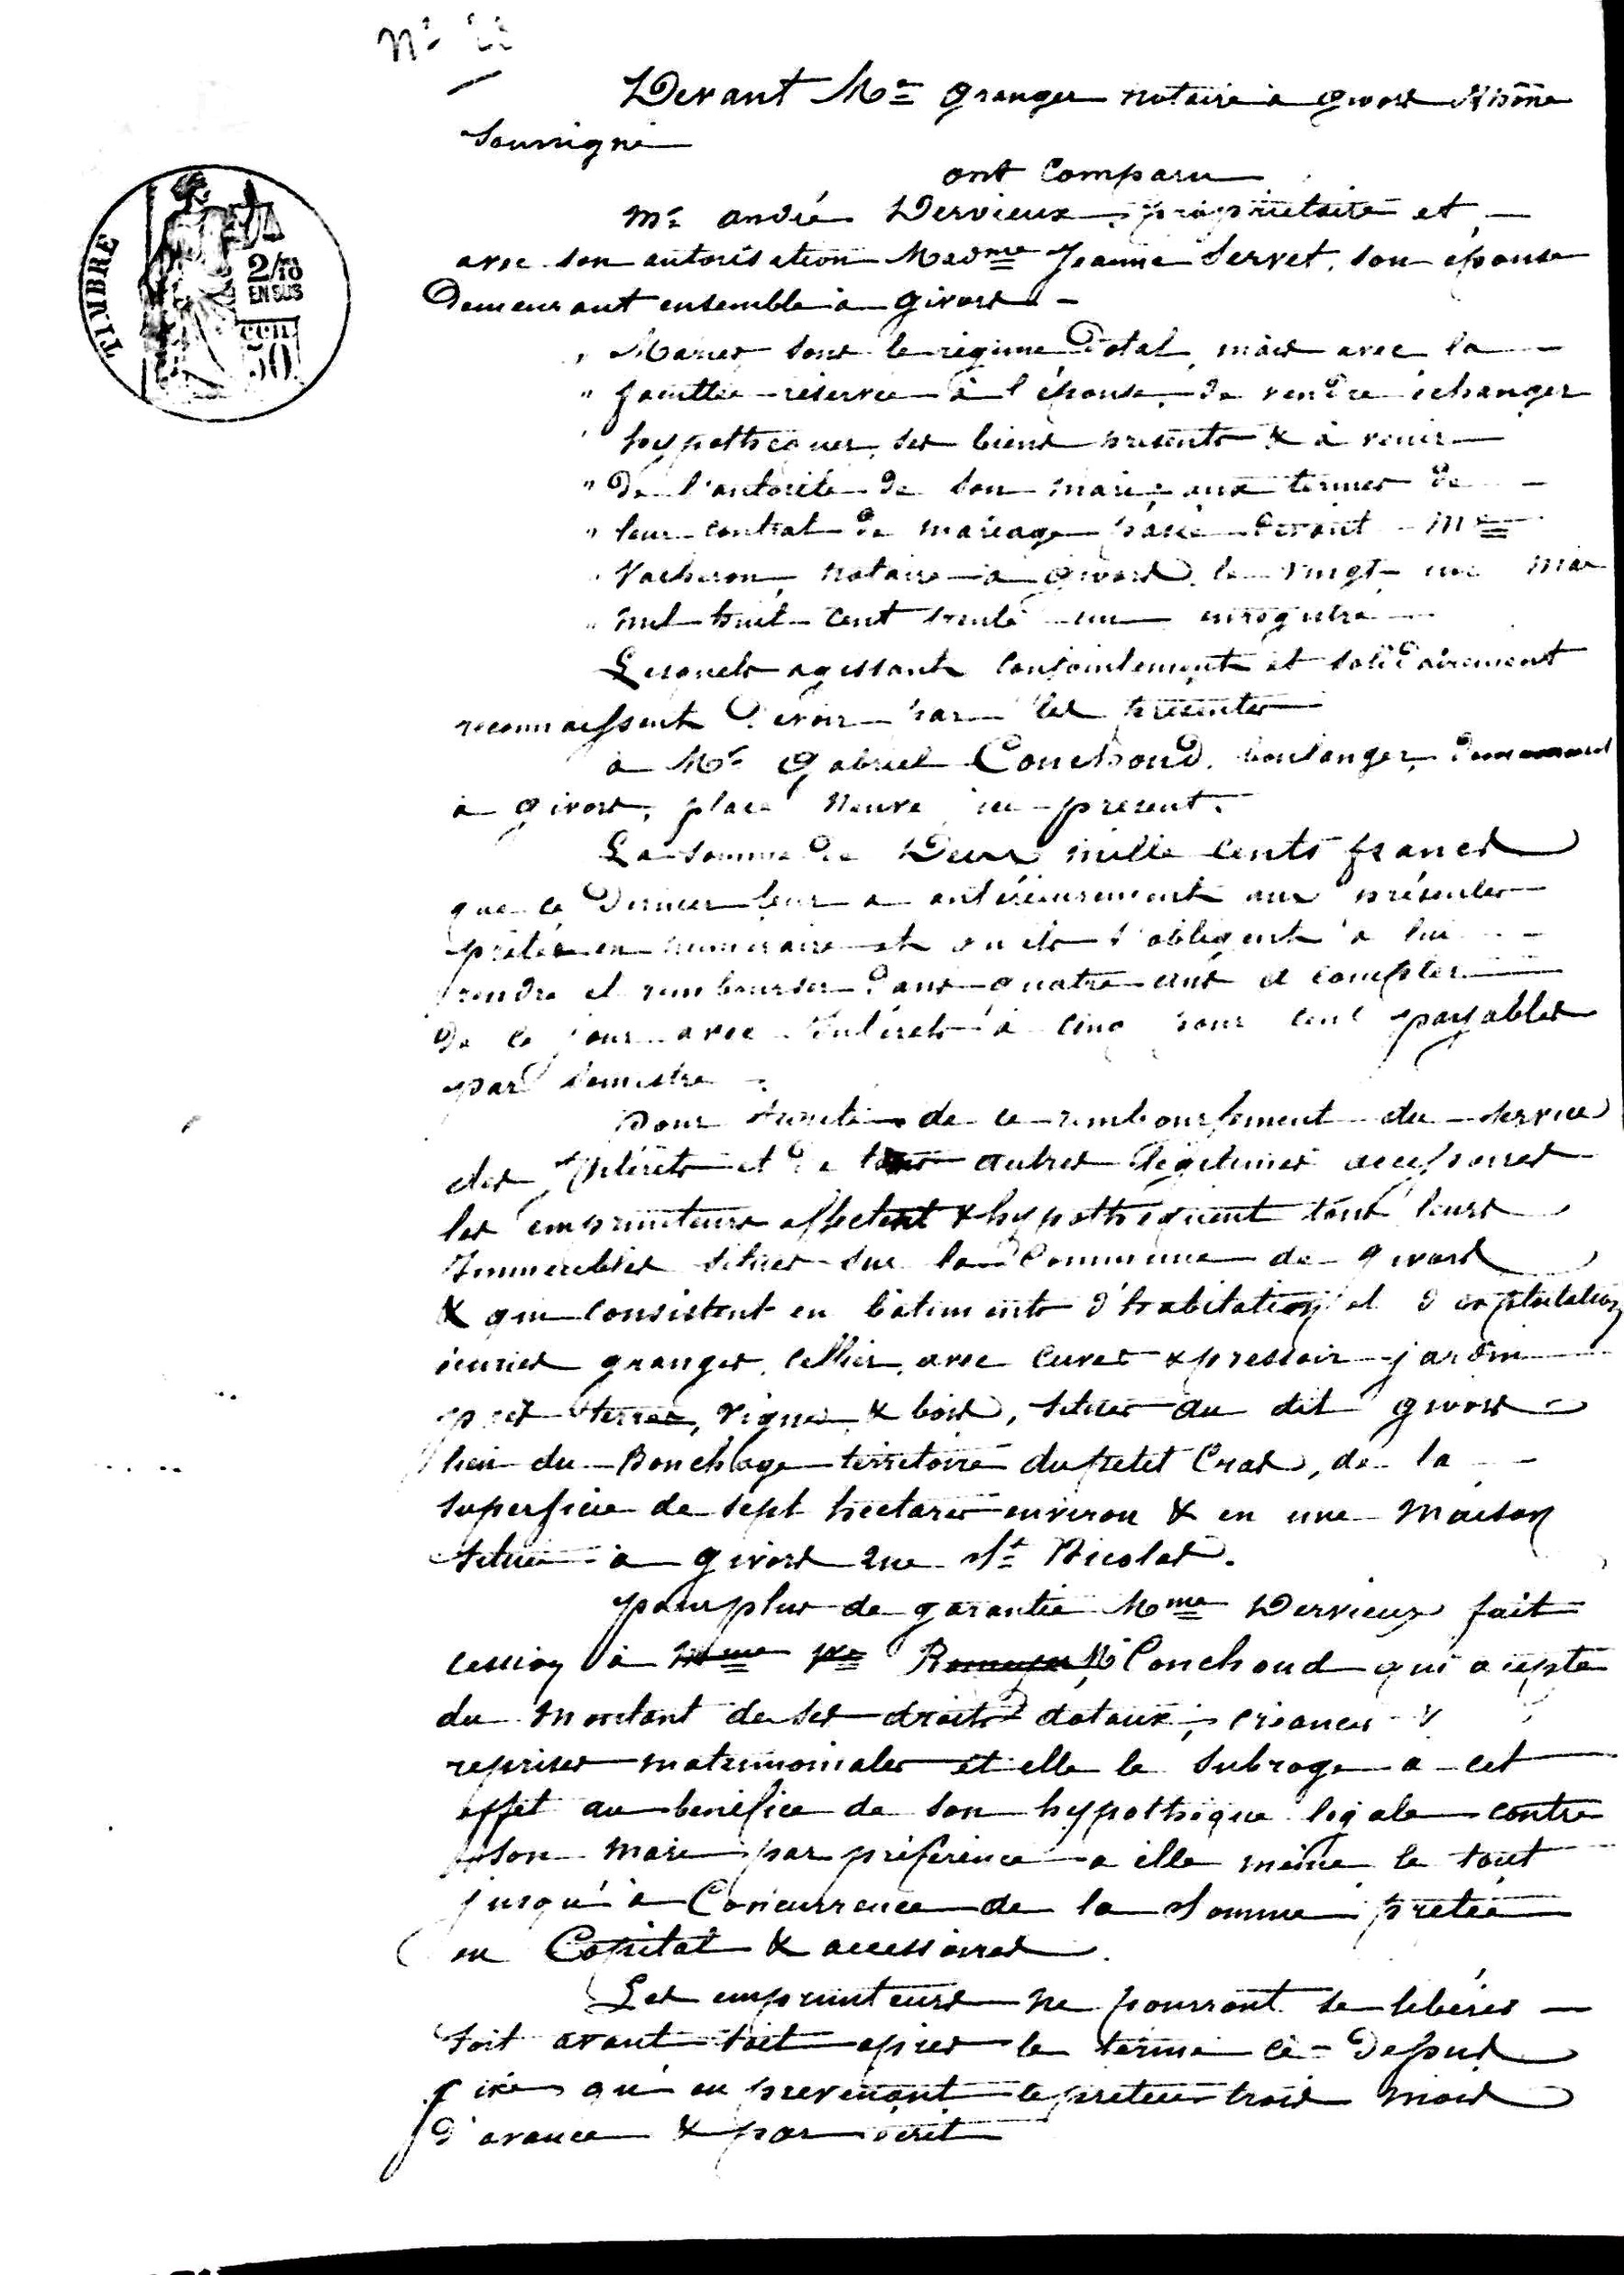 N°
Devant Me Granger notaire à Givors Rhône
Soussigné
ont Comparu
Mr andré Dervieux propriétaire et
avec son autorisation Madme Jeanne Servet, son épouse
Demeurant ensemble à Givors
TIMBRE
2/10
EN SUS
50
" Mariés sous le régime Dotal, mais avec la
" facultée réservée à l'épouse, de vendre échanger
" hypothéquer, ses biens présents & à venir
" De l'autorité de son mari, aux termes de
" leur contrat de mariage passé devant Me
" Vacheron, notaire à Givors, le vingt mai
" mil huit cent trente un enregistré
Lesquels agissants conjointement et solidairement
reconnaissent devoir par les présentes
à Mr Gabriel Conchoud, boulanger, demeurant
à Givors, place Neuve ici présent.
La somme de Deux mille Cents francs
que ce Dernier leur a antérieurement aux présentes
prêtés en numéraire et qu'ils s'obligent à lui
rendre et rembourser dans quatre ans à compter
de ce jour avec Intérets à cinq pour cent payables
par semestre
Pour sureté de ce remboursement du service
des Intérets et de tous autres légitimes accessoires
les emprunteurs affectent & hypothèquent tous leurs
Immeubles situés sur la Commune de Givors
& qui consistent en batiments d'habitation et d'exploitation
écuries granges, cellier, avec cuves & pressoir jardin
prés terres, vignes & bois, situés au dit Givors
lieu du Bonchage territoire du petit Cras, de la
superficie de sept hectares environ & en une Maison
située à Givors rue St Nicolas.
pour plus de garantie Mme Dervieux fait
cession à Mme Conchoud qui accepte
du montant de ses droits dotaux, créances &
reprises matrimoniales et elle le subroge a cet
effet au bénéfice de son hypothèque légale contre
son mari par préférence a elle même le tout
jusqu'à Concurrence de la Somme pretée
en Capital & accessoires.
Les emprunteurs ne pourront se libérer
soit avant soit après le terme ci-dessus
fixé qu'en prevenant le preteur trois mois
d'avance & par écrit